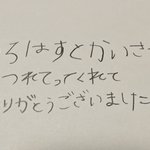 ろはすとかいさ
つれてってくれて
りがとうございました